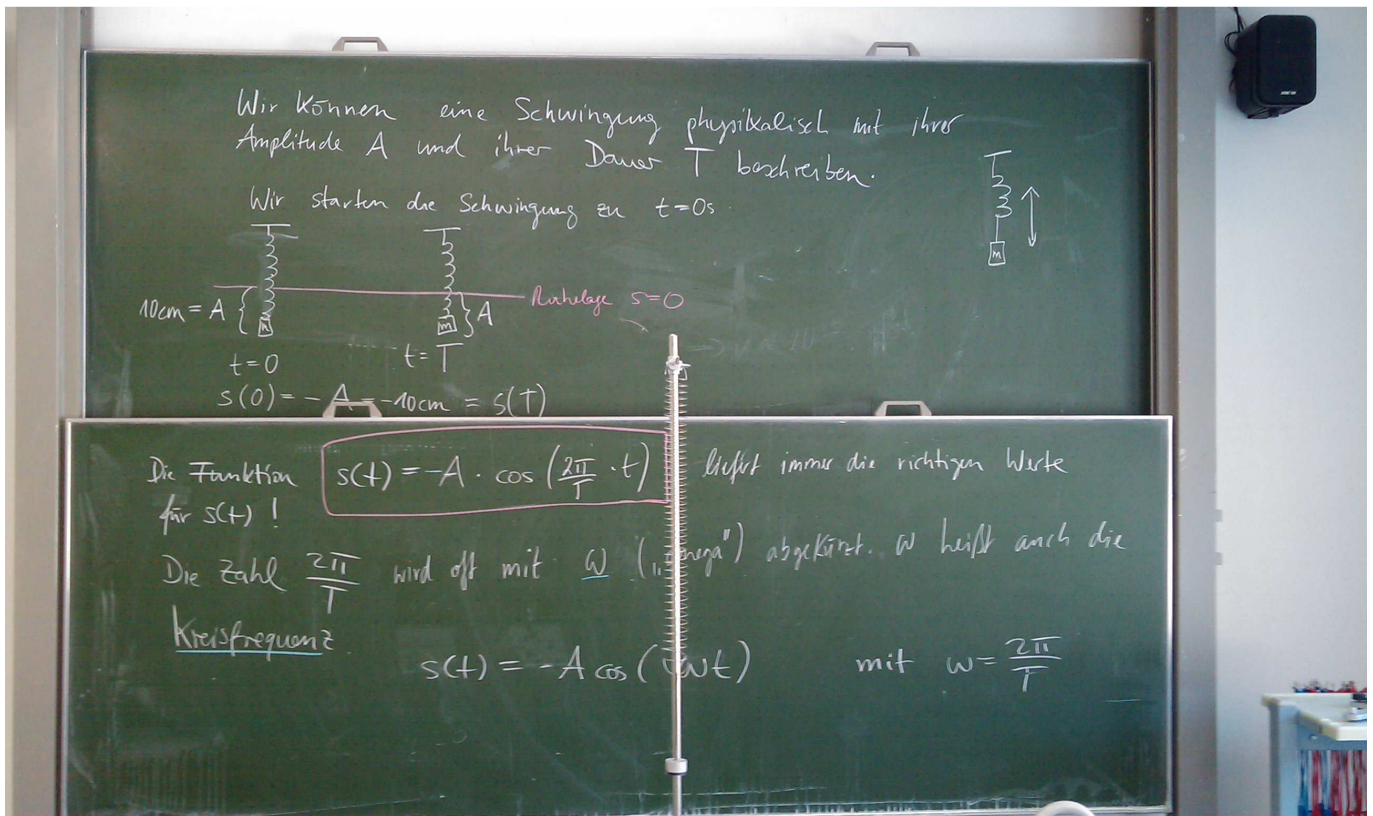 Wir können eine Schwingung physikalisch mit ihrer
Amplitude A und ihrer Dauer T beschreiben.
Wir starten die Schwingung zu t=0s.
m
10cm = A
m
m
A
Ruhelage s=0
t=0
t=T
s(0) = -A = -10cm = s(T)
Die Funktion s(t) = -A · cos (2π/T · t) liefert immer die richtigen Werte
für s(t) !
Die Zahl 2π/T wird oft mit ω („omega") abgekürzt. ω heißt auch die
Kreisfrequenz.
s(t) = -A cos (ωt) mit ω = 2π/T